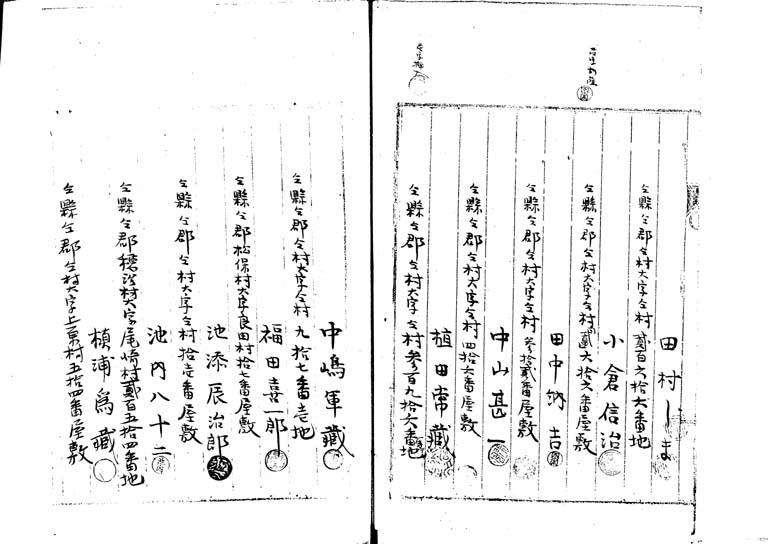 田村しま
仝縣仝郡仝村大字仝村貳百六拾六番地
小倉信治
仝縣仝郡仝村大字仝村貳六拾六番屋敷
田中納吉
仝縣仝郡仝村大字仝村参拾貳番屋敷
中山甚一
仝縣仝郡仝村大字仝村四拾六番屋敷
植田常藏
仝縣仝郡仝村大字仝村参百九拾六番地
中嶋軍藏
仝縣仝郡仝村大字仝村九拾七番壱地
福田喜一郎
仝縣仝郡松保村大字良田村拾七番屋敷
池添辰治郎
仝縣仝郡仝村大字仝村拾壱番屋敷
池内八十二
仝縣仝郡 村大字尾崎村貳百五拾四番地
槙浦為藏
仝縣仝郡仝村大字上原村五拾四番屋敷